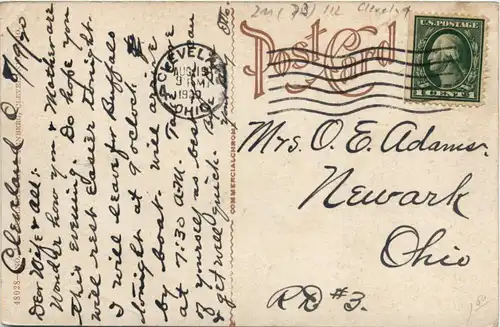 Cleveland O
8/19/20
Dear Wife & all:
Wonder how you & Mother are
this evening. Do hope you
will rest easier tonight.
I will leave for Buffalo
tonight at 9 o'clock
by boat. Will arrive
at 7:30 A.M. Take care
of yourself as best you can
& get well quick.
CLEVELAND
AUG 19
OHIO
COMMERCIALCHROME
48028
Post Card
Cleveland
U.S. POSTAGE
1 CENT 1
Mrs. O. E. Adams.
Newark
Ohio
RD #3.